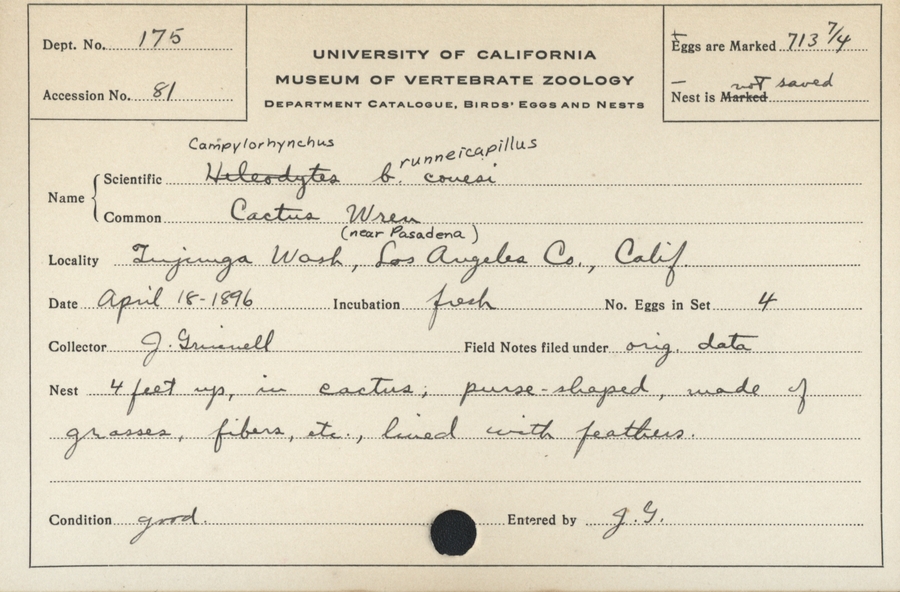 Dept. No. 175
Accession No. 81
UNIVERSITY OF CALIFORNIA
MUSEUM OF VERTEBRATE ZOOLOGY
DEPARTMENT CATALOGUE, BIRDS' EGGS AND NESTS
Eggs are Marked 713 7/4
not saved
Nest is Marked
Campylorhynchus runneicapillus
Name
Scientific Heleodytes b. couesi
Common Cactus Wren
(near Pasadena)
Locality Tujunga Wash, Los Angeles Co., Calif.
Date April 18-1896 Incubation fresh No. Eggs in Set 4
Collector J. Grinnell Field Notes filed under orig. data
Nest 4 feet up, in cactus; purse-shaped, made of
grasses, fibers, etc., lined with feathers.
Condition good. Entered by J.G.